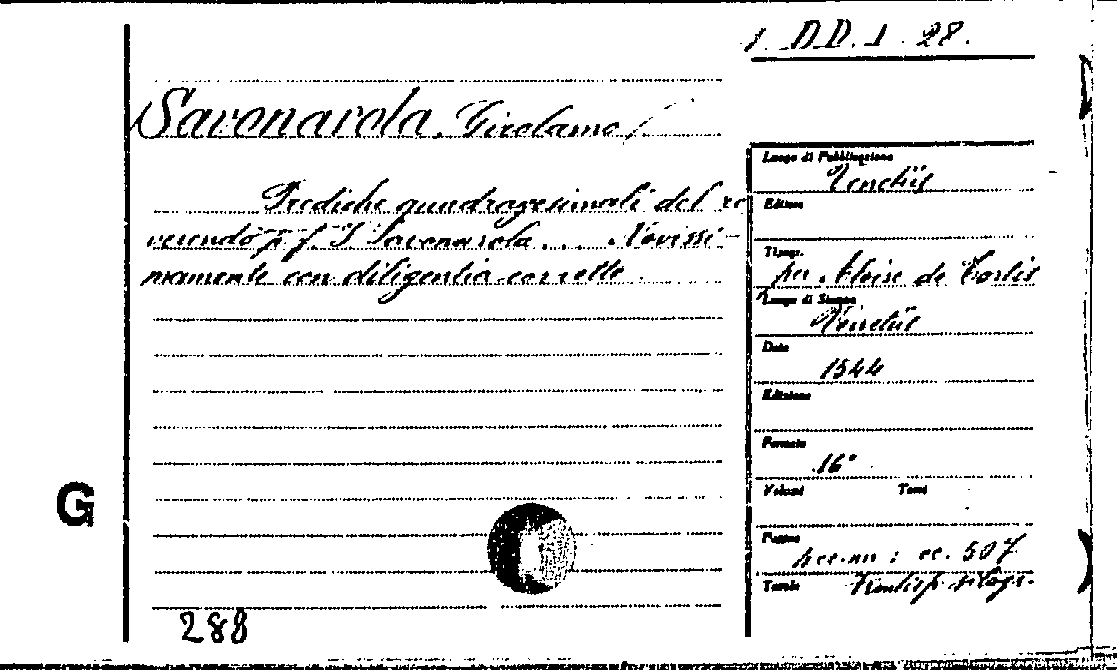 1. DD. I. 28.
Savonarola, Girolamo
Prediche quadragesimali del re
verendo p. f. J. Savonarola ... Novissi-
mamente con diligentia corrette.
Luogo di Pubblicazione
Venetiis
Editore
Tipogr.
per Aloise de Tortis
Luogo di Stampa
Venetiis
Data
1544
Edizione
Formato
16°
Volumi Tomi
Pagine
4 cc. nn : cc. 507
Tavole Frontisp. silogr.
G
288